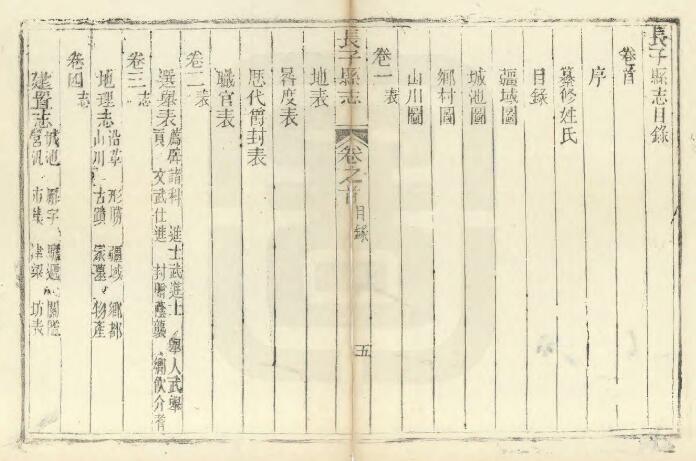 長子縣志目錄
卷首
序
目錄
纂修姓氏
疆域圖
城池圖
鄉村圖
山川圖
卷一 表
長子縣志 卷之首 目錄 五
地表
晷度表
歷代簡封表
職官表
卷二 表
選舉表 薦辟 諸科 進士武進士 舉人武舉
貢 文武仕進 封贈蔭襲 鄉飲介耆
卷三 志
地理志 沿革 形勝 疆域 鄉都
山川 古蹟 冢墓 物產
卷四 志
建置志 城池 廨宇 驛遞 關隘
營汛 市鎮 津梁 坊表